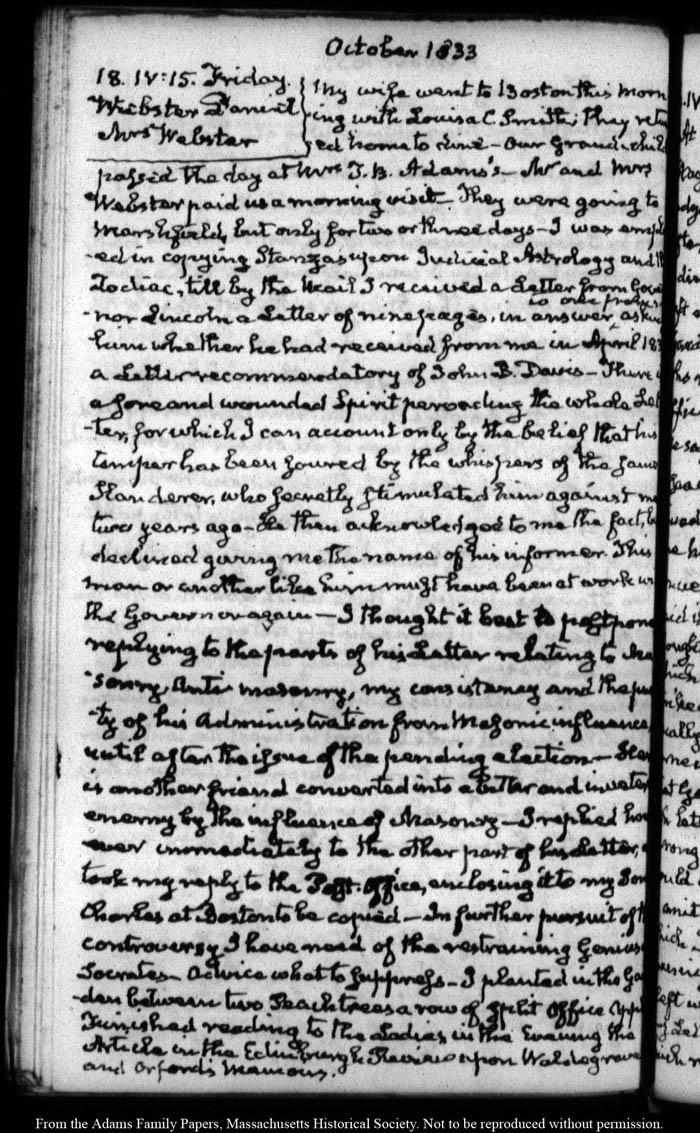 October 1833
18. IV:15. Friday.
Webster Daniel
Mrs Webster
My wife went to Boston this morn
ing with Louisa C. Smith; they retu
ed home to dine – Our Grandchil
passed the day at Mrs T. B. Adams's – Mr and Mrs
Webster paid us a morning visit – They were going to
Marshfield, but only for two or three days – I was empl
-ed in copying Stanzas upon Judicial Astrology and th
Zodiac, till by the Mail I received a Letter from Gove
-nor Lincoln a Letter of nine pages, in answer to one from me asking
him whether he had received from me in April 183
a Letter recommendatory of John B. Davis – There i
a sore and wounded Spirit pervading the whole Let
-ter, for which I can account only by the belief that his
temper has been soured by the whispers of the same
Slanderer, who secretly stimulated him against me
two years ago – He then acknowledged to me the fact, b
declined giving me the name of his informer. This
man or another like him must have been at work wi
the Governor again – I thought it best to postpone
replying to the parts of his Letter relating to Ma
-sonry, Anti masonry, my consistency and the pu
-ty of his Administration from Masonic influence,
until after the issue of the pending election – He
is another friend converted into a bitter and inveter
enemy by the influence of Masonry – I replied how
ever immediately to the other part of his Letter,
took my reply to the Post-Office, enclosing it to my Son
Charles at Boston to be copied – In further pursuit of th
controversy I have need of the restraining Genius
Socrates – Advice what to suppress – I planted in the Ga
-den between two Peach trees a row of split Office
Finished reading to the Ladies in the Evening the
Article in the Edinburgh Review upon Waldegrave
and Orford's Memoirs.
From the Adams Family Papers, Massachusetts Historical Society. Not to be reproduced without permission.